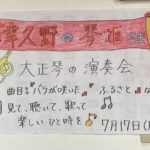 津久野の琴姫さま
大正琴の演奏会
曲目 バラが咲いた ふるさと
見て、聴いて、歌って
楽しいひと時を
7月17日(